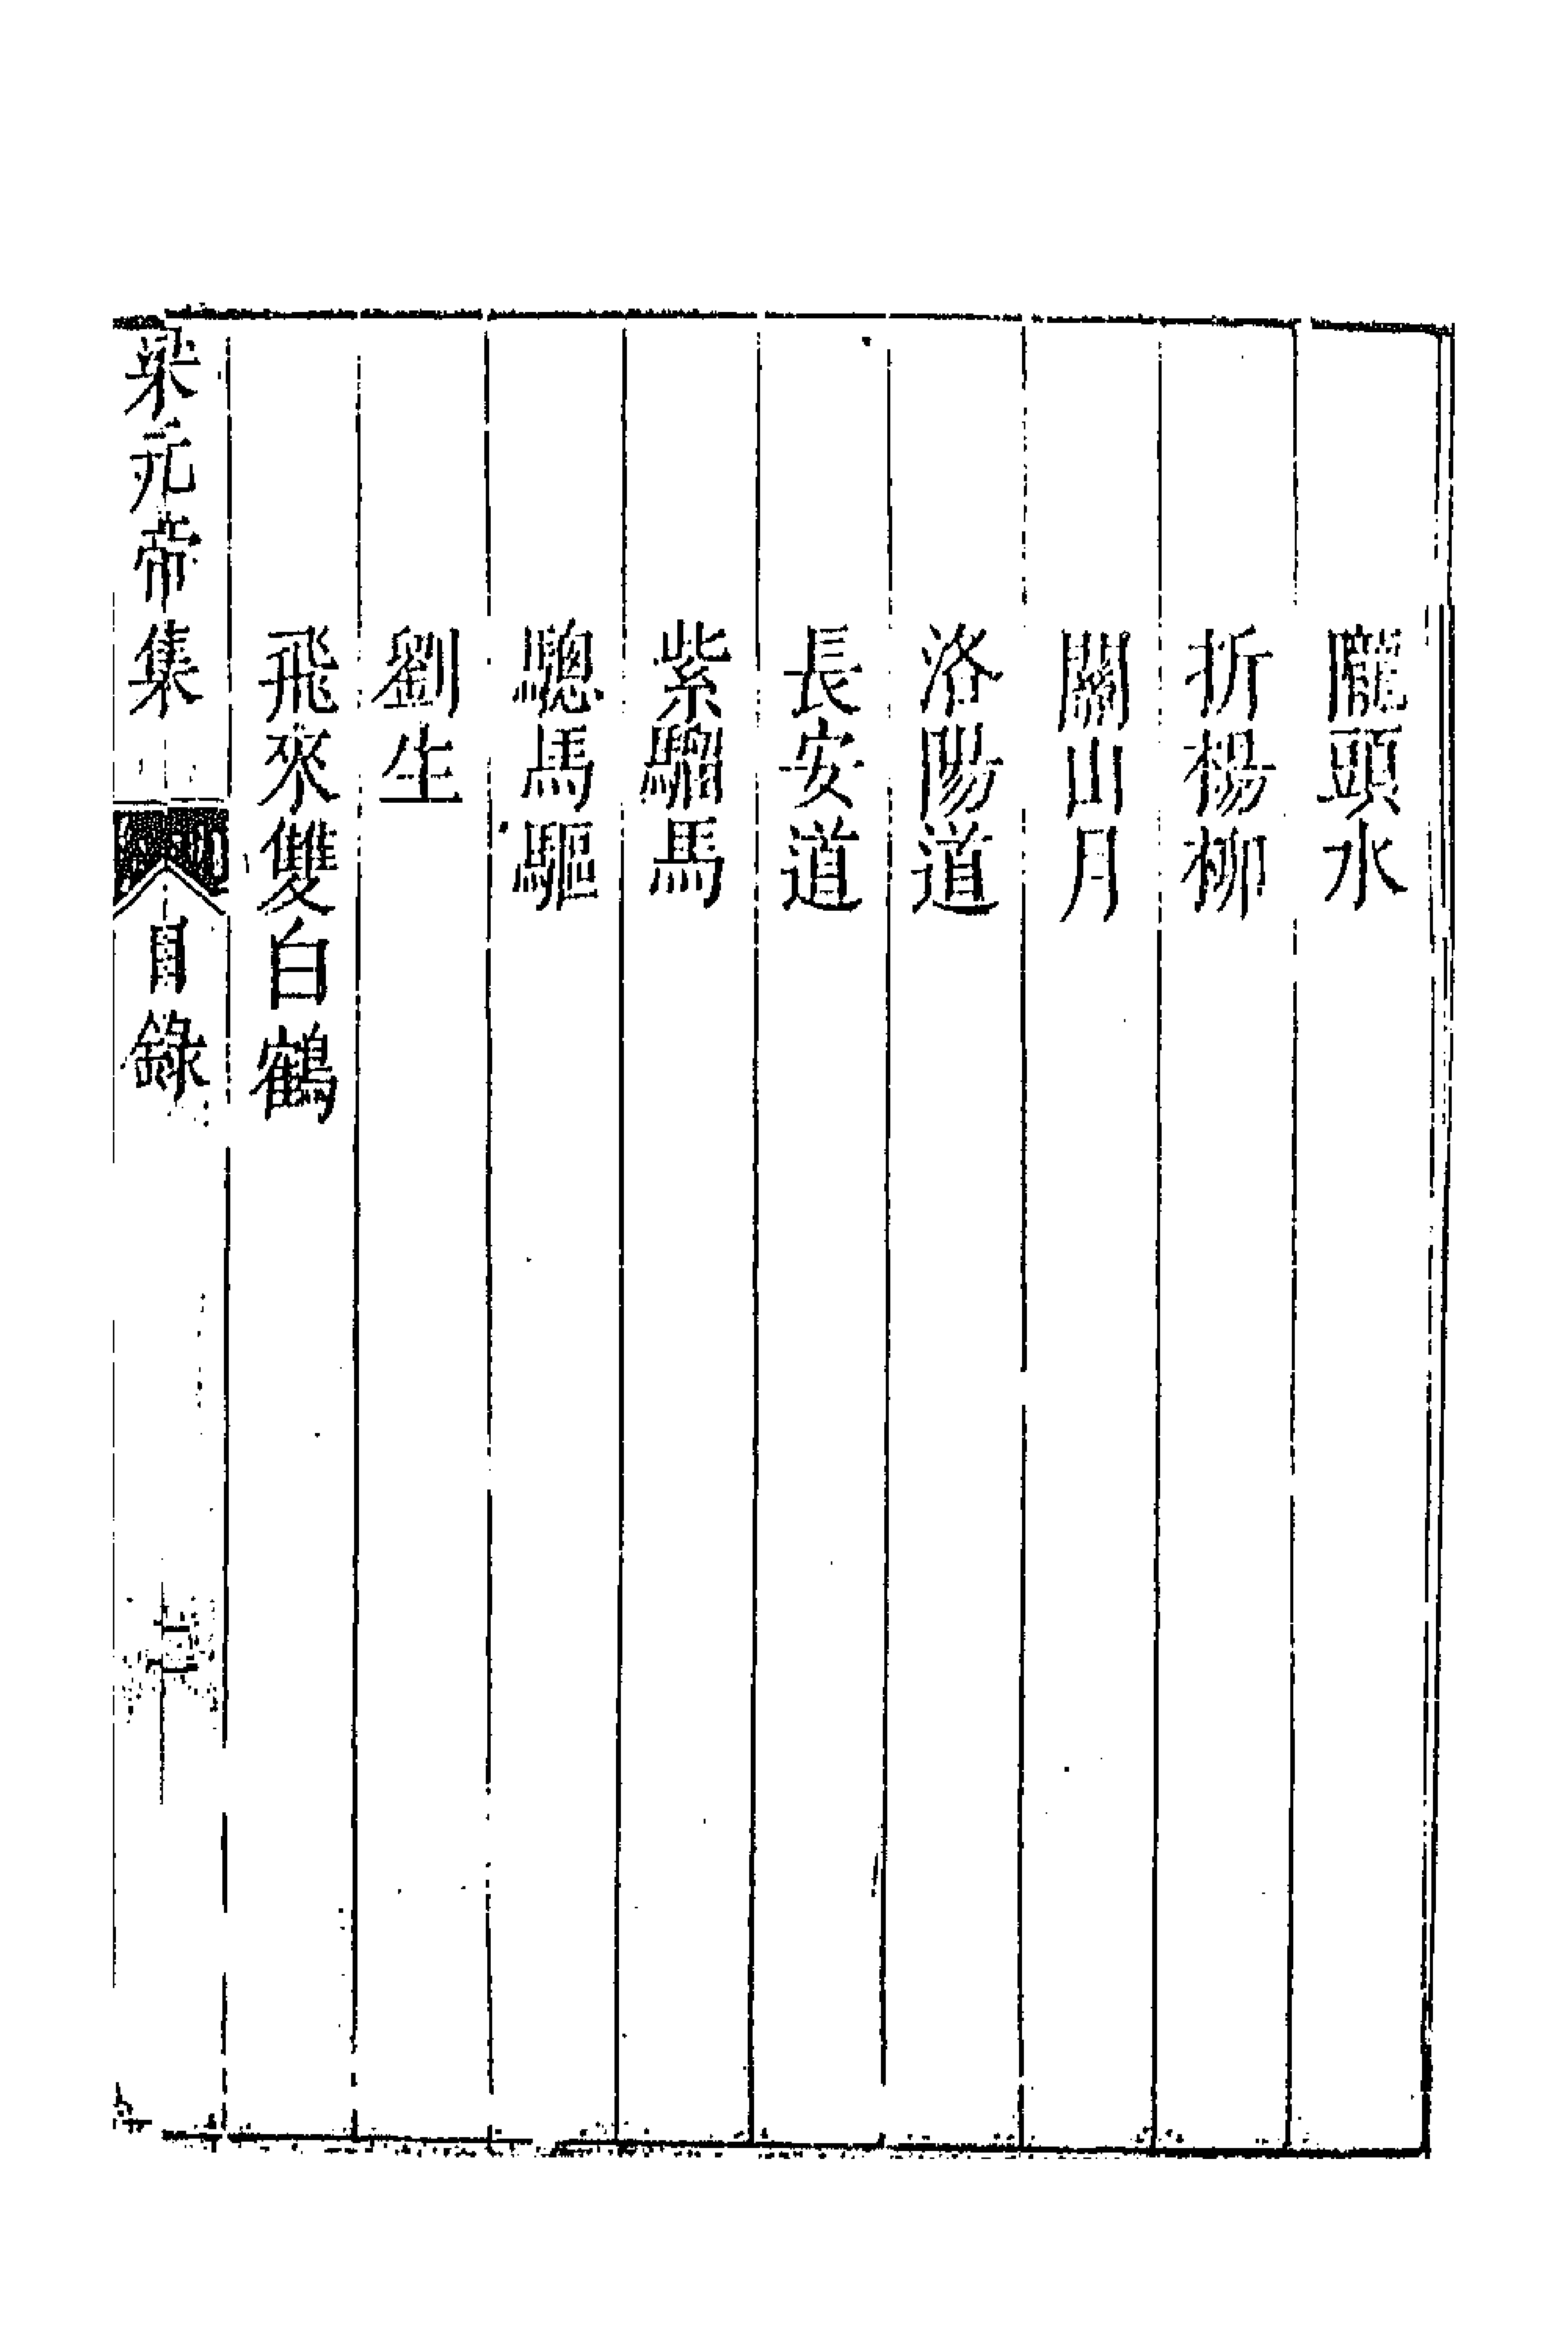 隴頭水
折楊柳
關山月
洛陽道
長安道
紫騮馬
驄馬驅
劉生
飛來雙白鶴
梁元帝集
目錄